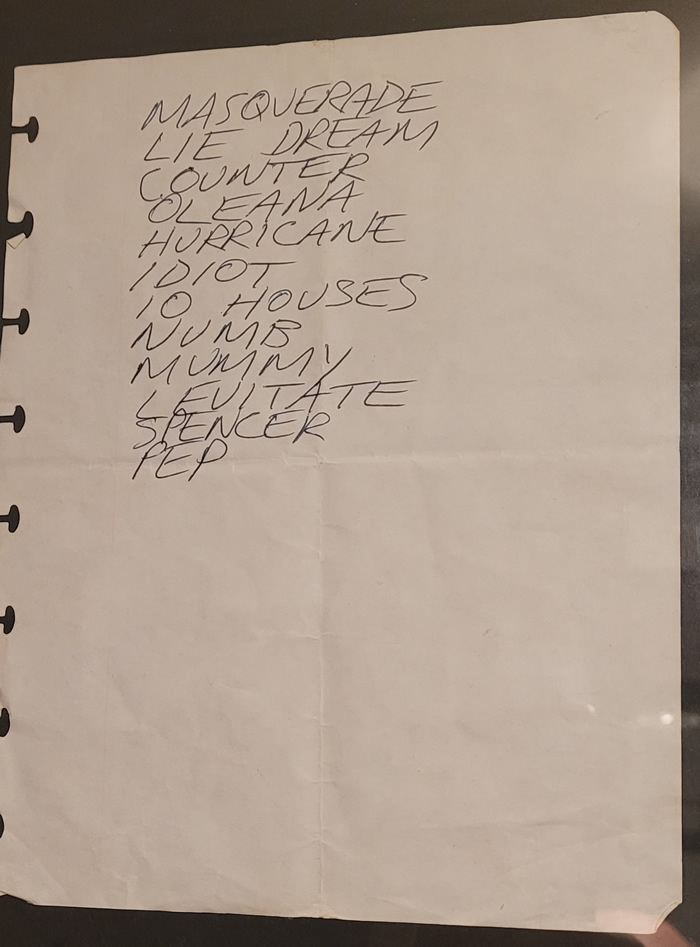 MASQUERADE
LIE DREAM
COUNTER
OLEANA
HURRICANE
IDIOT
10 HOUSES
NUMB
MUMMY
LEVITATE
SPENCER
PEP